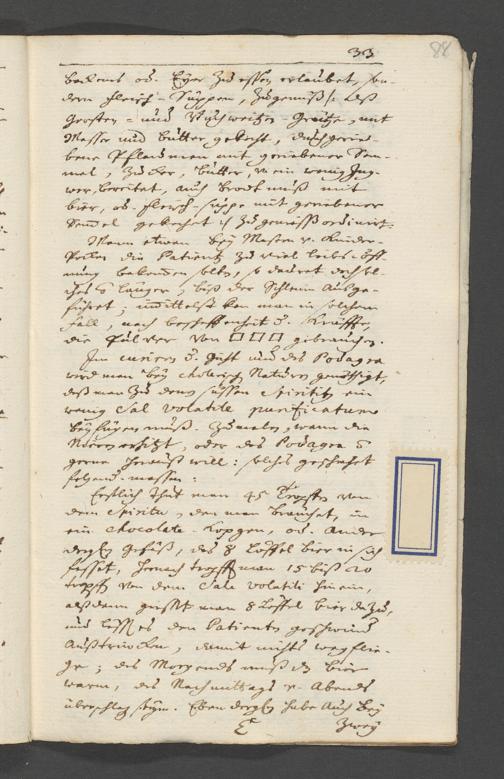 33
88
bekomt od. Eyer zu essen erlaubet, son-
dern Fleisch-Suppen, zugemüß
Gersten- und Buchweitzen-Grütze, mit
Wasser und butter gekocht, durchgerie-
bene Pflaumen mit geriebener Sem-
mel, Zucker, butter, u ein wenig Ing-
wer, bereitet, auch brodtmuß mit
bier, od. Fleisch-suppe mit geriebener
Semel gekochet zugemüß ordinirt.
Wenn etwan bey Masern u. Kinder-
Pocken die Patienten zu viel leibs-öff
nung bekommen solten, so dauret
länger, biß der Schleim ausge-
führet; mittelst kan man in solchem
Fall, nach beschaffenheit d. Kräffte,
die Pulver von □□□ gebrauchen.
Im curiren d. Gicht und des Podagra
wird man bey cholerisch Naturen genöthiget,
daß man zu dem süssen Spiritu ein
wenig Sal volatile purificatum
beyfügen muß. Zumalen, wann die
Nieren erhitzt, oder das Podagra
gerne heraus will: solches geschiehet
folgend-massen:
Erstlich thut man 45 Tropffen von
dem Spiritu, den man brauchet, in
ein Chocolate-Köpgen, od. ander
dergl. gefäß, das 8 Löffel bier in sich
fasset, hernach tropfft man 15 biß 20
tropff. von dem Sale volatili hinein,
alsdann giesset man 8 Löffel bier dazu,
und lässt es den Patienten geschwind
austrincken, damit nichts wegflie-
ge; des Morgends muß das bier
warm, des Nachmittags u. Abends
überschlag seyn. Eben dergl. habe auch bey
zwey